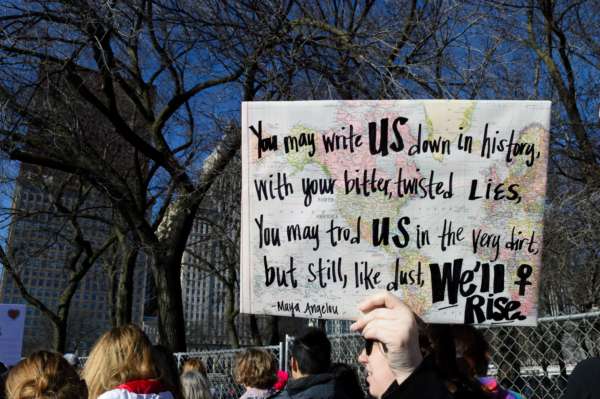 You may write US down in history,
with your bitter, twisted LIES,
You may trod US in the very dirt,
but still, like dust, We'll
RISE.
- Maya Angelou